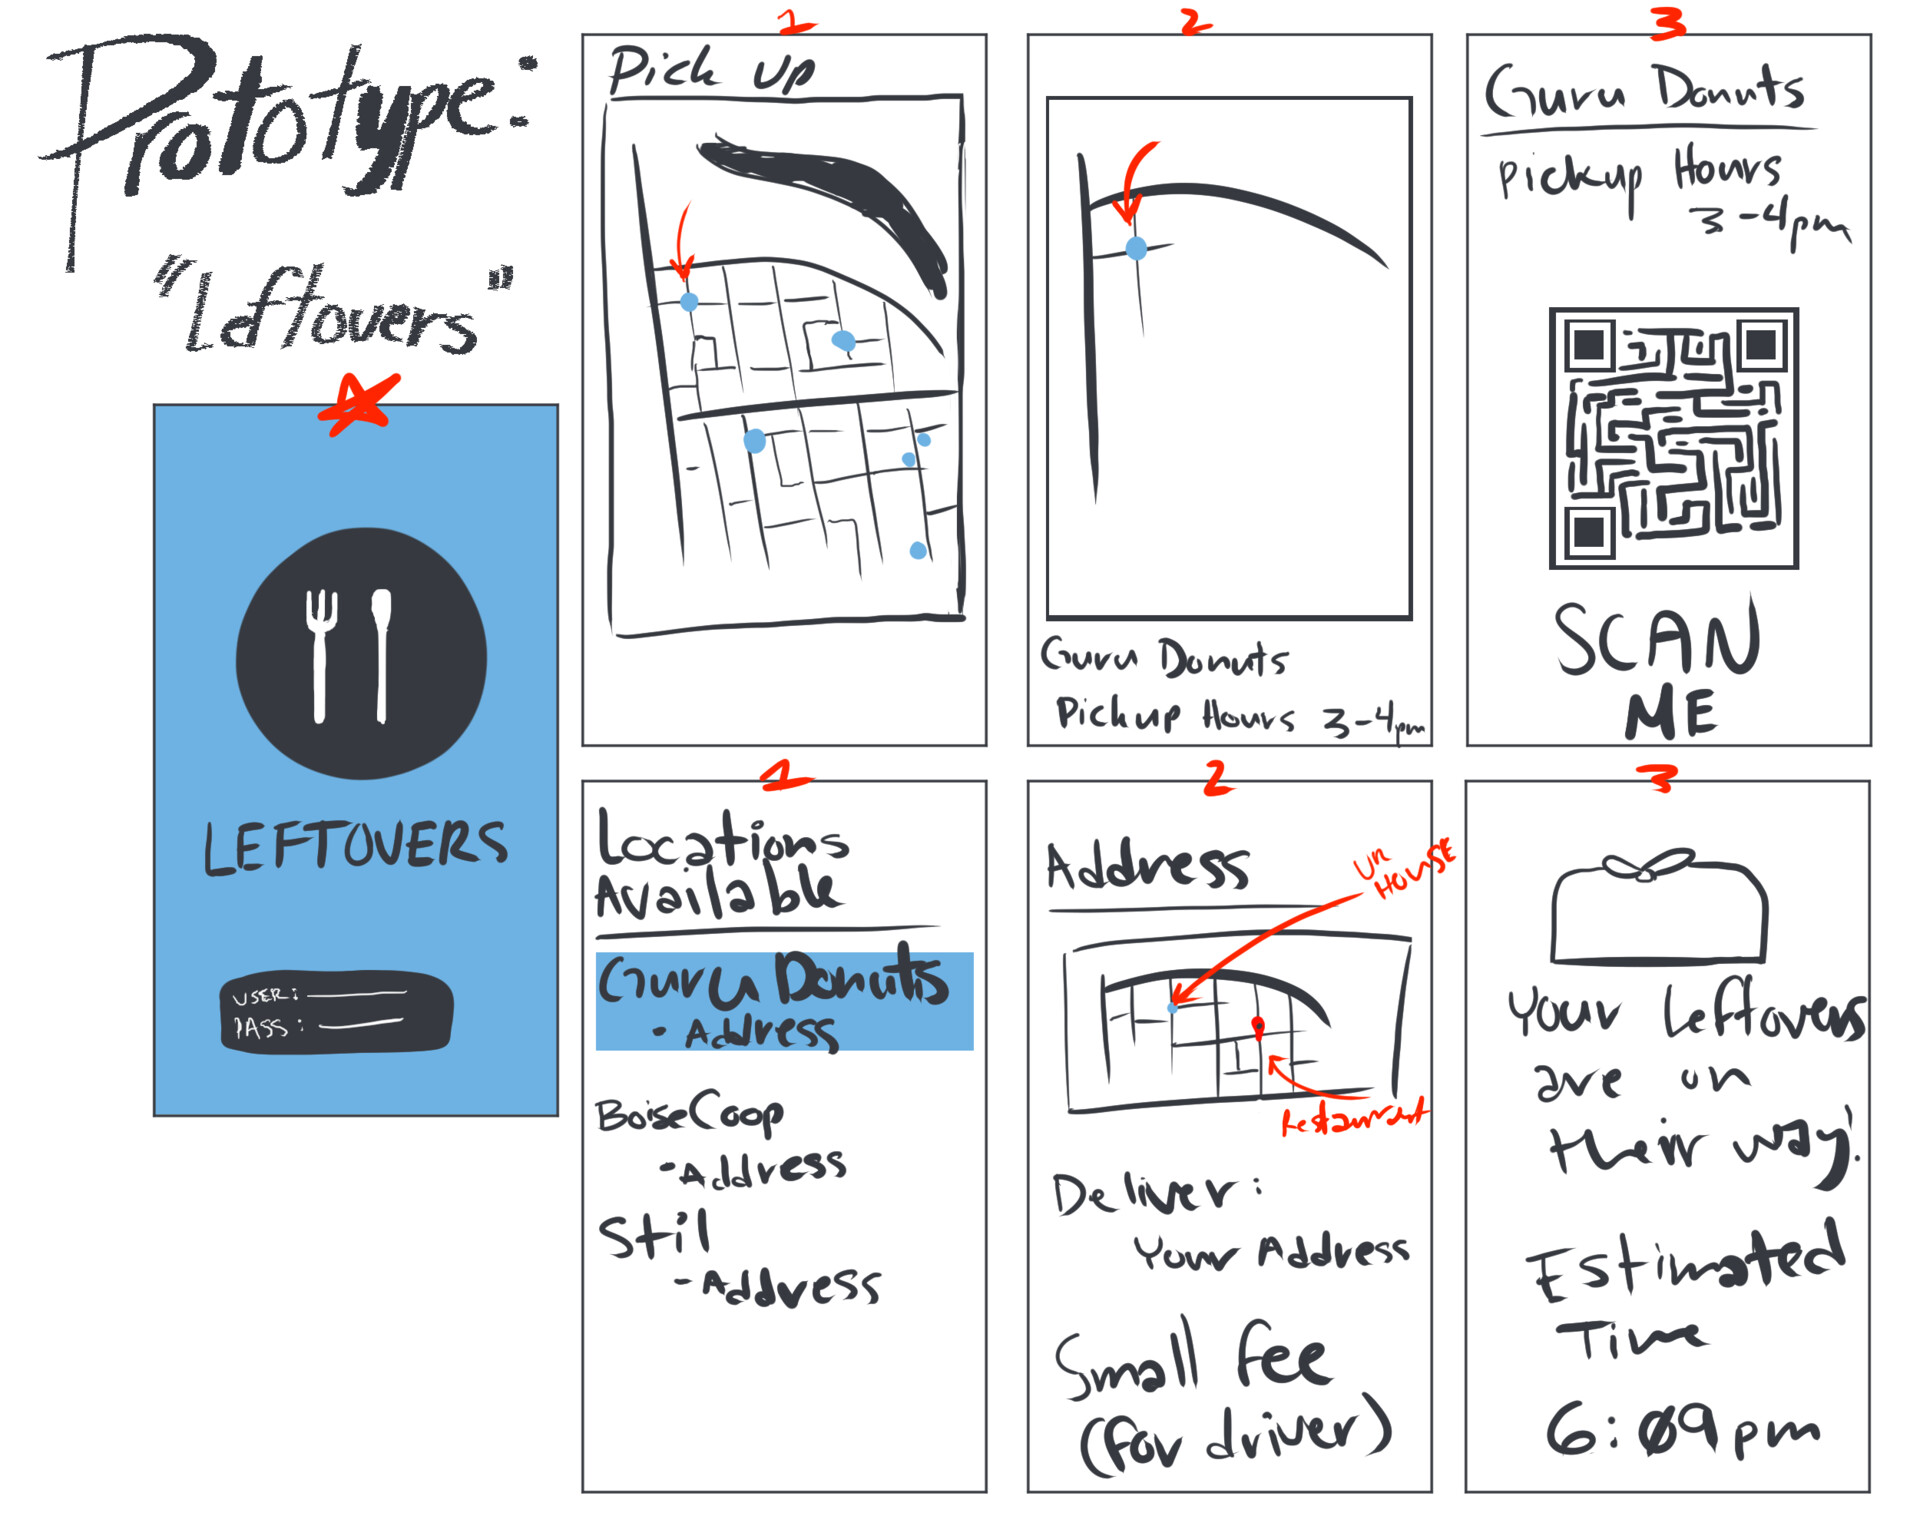 Prototype:
"Leftovers"
LEFTOVERS
USER:
PASS:
1
Pick up
2
Guru Donuts
Pickup Hours 3-4pm
3
Guru Donuts
Pickup Hours
3-4pm
SCAN
ME
1
Locations
Available
Guru Donuts
• Address
Boise Coop
- Address
Stil
- Address
2
Address
UR
HOUSE
Restaurant
Deliver:
Your Address
Small fee
(for driver)
3
Your Leftovers
are on
their way!
Estimated
Time
6:09pm